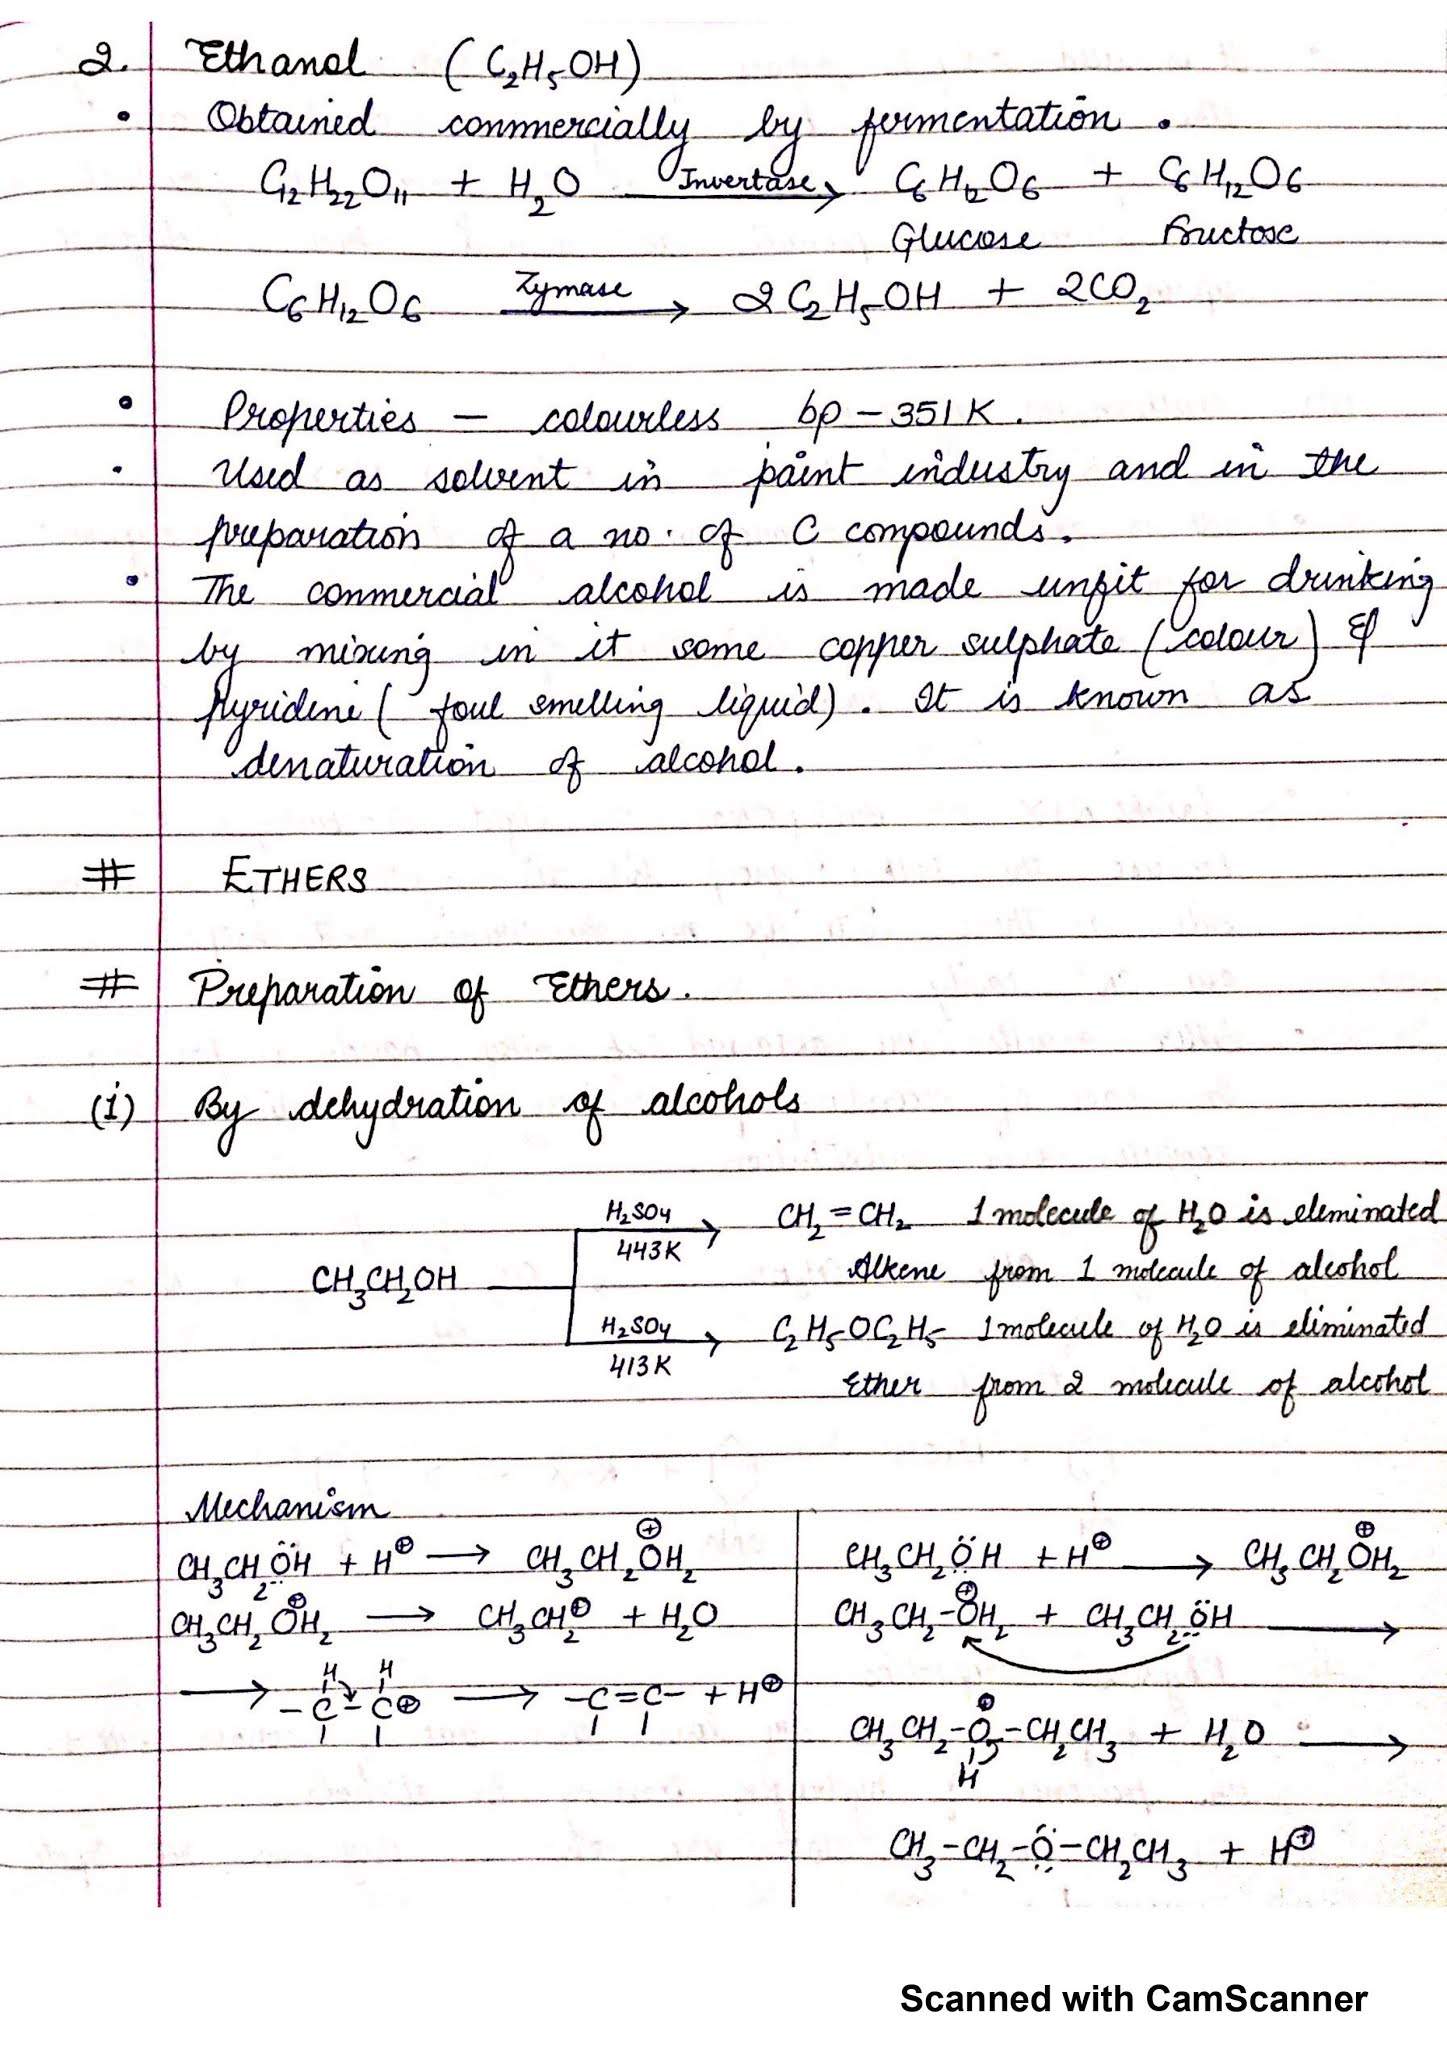 2. Ethanol (C2H5OH)
• Obtained commercially by fermentation.
C12H22O11 + H2O Invertase→ C6H12O6 + C6H12O6
Glucose Fructose
C6H12O6 Zymase→ 2C2H5OH + 2CO2
• Properties – colourless bp – 351K.
• Used as solvent in paint industry and in the
preparation of a no. of C compounds.
• The commercial alcohol is made unfit for drinking
by mixing in it some copper sulphate (colour) &
pyridine (foul smelling liquid). It is known as
denaturation of alcohol.
# ETHERS
# Preparation of Ethers.
(i) By dehydration of alcohols
H2SO4→ CH2=CH2 1 molecule of H2O is eleminated
443K Alkene from 1 molecule of alcohol
CH3CH2OH
H2SO4→ C2H5OC2H5 1 molecule of H2O is eliminated
413K Ether from 2 molecule of alcohol
Mechanism
CH3CH2ÖH + H⊕ → CH3CH2O⊕H2
CH3CH2O⊕H2 → CH3CH2⊕ + H2O
H H
→ –C–C⊕ → –C=C– + H⊕
CH3CH2ÖH + H⊕ → CH3CH2O⊕H2
CH3CH2–O⊕H2 + CH3CH2ÖH →
CH3CH2–O⊕–CH2CH3 + H2O →
H
CH3–CH2–Ö–CH2CH3 + H⊕
Scanned with CamScanner